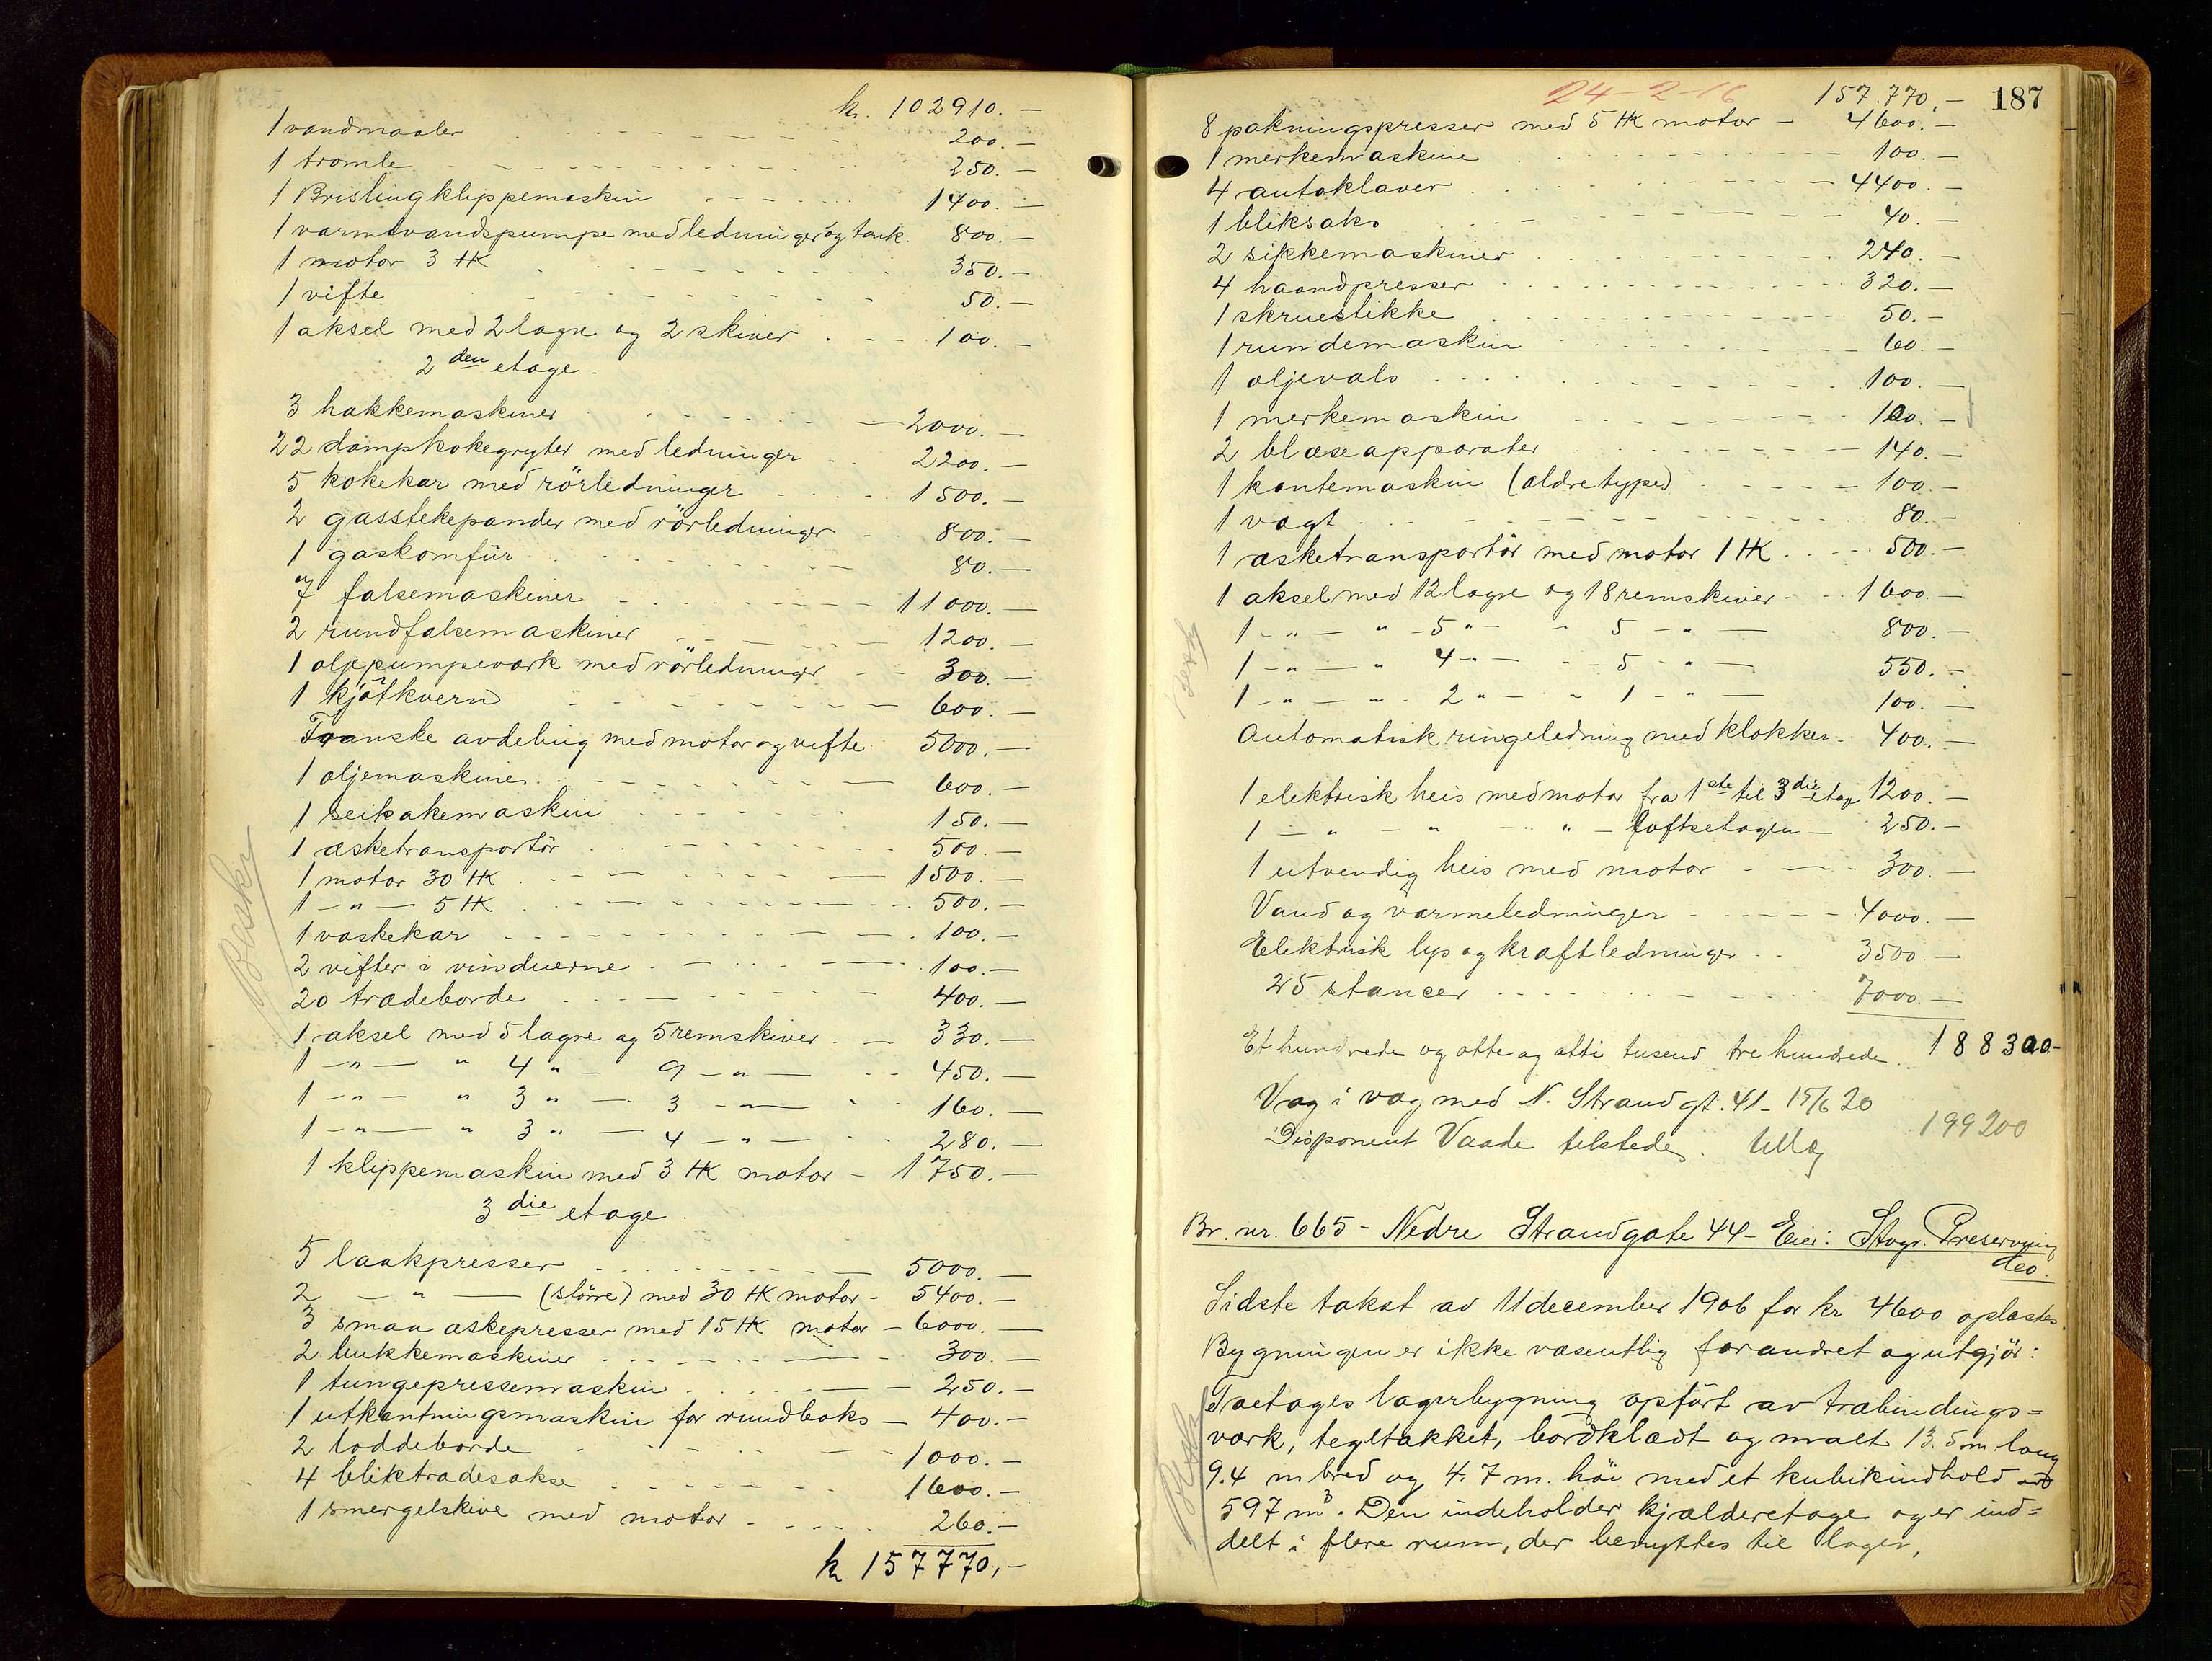 kr. 102910.—
1 vandmaaler - - - - - 200.—
1 tromle - - - - - 250.—
1 Brislingklippemaskin - - - - 1400.—
1 varmtvandspumpe med ledninger og tank. 800.—
1 motor 3 HK - - - - 350.—
1 vifte - - - - 50.—
1 aksel med 2 lagre og 2 skiver - - - 100.—
2den etage.
3 hakkemaskiner - - - - 2000.—
22 dampkokegryter med ledninger - - 2200.—
5 kokekar med rörledninger - - - 1500.—
2 gasstekepander med rörledninger - - 800.—
1 gaskomfür - - - - 80.—
7 falsemaskiner - - - - 11000.—
2 rundfalsemaskiner - - - - 1200.—
1 oljepumpeverk med rörledninger - - 300.—
1 kjötkvern - - - - 600.—
Franske avdeling med motor og vifte. 5000.—
1 oljemaskine - - - - 600.—
1 seikakemaskin - - - - 150.—
1 æsketransportör - - - - 500.—
1 motor 30 HK - - - - 1500.—
1 - " - 5 HK - - - - 500.—
1 vaskekar - - - - 100.—
2 vifter i vinduerne - - - - 100.—
20 trædeborde - - - - 400.—
1 aksel med 5 lagre og 5 remskiver - - 330.—
1 - " - " 4 " - 9 - " - - - 450.—
1 - " - " 3 " - 3 - " - - - 160.—
1 - " - " 3 " - 4 - " - - - 280.—
1 klippemaskin med 3 HK motor - 1750.—
3die etage.
5 laakpresser - - - - 5000.—
2 - " - (större) med 30 HK motor - 5400.—
3 smaa æskepresser med 15 HK motor - 6000.—
2 bukkemaskiner - - - - 300.—
1 tungepressemaskin - - - - 250.—
1 utkantningsmaskin for rundboks - 400.—
2 loddeborde - - - - 1000.—
4 bliktradesakse - - - - 1600.—
1 smergelskive med motor - - - 260.—
kr 157770,—
Besk
24-2-16
187
157.770,—
8 pakningspresser med 5 HK motor - 4600.—
1 merkemaskine - - - - 100.—
4 autoklaver - - - - 4400.—
1 bliksaks - - - - 40.—
2 sikkemaskiner - - - - 240.—
4 haandpresser - - - - 320.—
1 skruestikke - - - - 50.—
1 rundemaskin - - - - 60.—
1 oljevals - - - - 100.—
1 merkemaskin - - - - 100.—
2 blæseapparater - - - - 140.—
1 kantemaskin (ældre type) - - - 100.—
1 vægt - - - - 80.—
1 æsketransportör med motor 1 HK - - 500.—
1 aksel med 12 lagre og 18 remskiver - - 1600.—
1 - " - " - 5 " - - 5 - " - 800.—
1 - " - " 4 - " - - 5 - " - 550.—
1 - " - " - 2 " - - 1 - " - 100.—
Automatisk ringeledning med klokker - 400.—
1 elektrisk heis med motor fra 1ste til 3die etag 1200.—
1 - " - " - - " - loftsetagen - 250.—
1 utvendig heis med motor - - - 300.—
Vand og varmeledninger - - - - 4000.—
Elektrisk lys og kraftledninger - - 3500.—
25 stancer - - - - 7000.—
Et hundrede og otte og otti tusend tre hundrede. 188300-
Væg i væg med N. Strandgt. 41 - 15/6 20
199200
Disponent Vaade tilstede.
Br. nr. 665 - Nedre Strandgate 44 - Eier: Stvgr. Preserving
Co.
Sidste takst av 11 december 1906 for kr 4600 oplæstes.
Bygningen er ikke væsentlig forandret og utgjör:
Toetages lagerbygning opfört av træbindings=
værk, tegltækket, bordklædt og malt 13.5 m lang
9.4 m bred og 4.7 m. höi med et kubikindhold av
597 m³. Den indeholder kjælderetage og er ind=
delt i flere rum, der benyttes til lager,